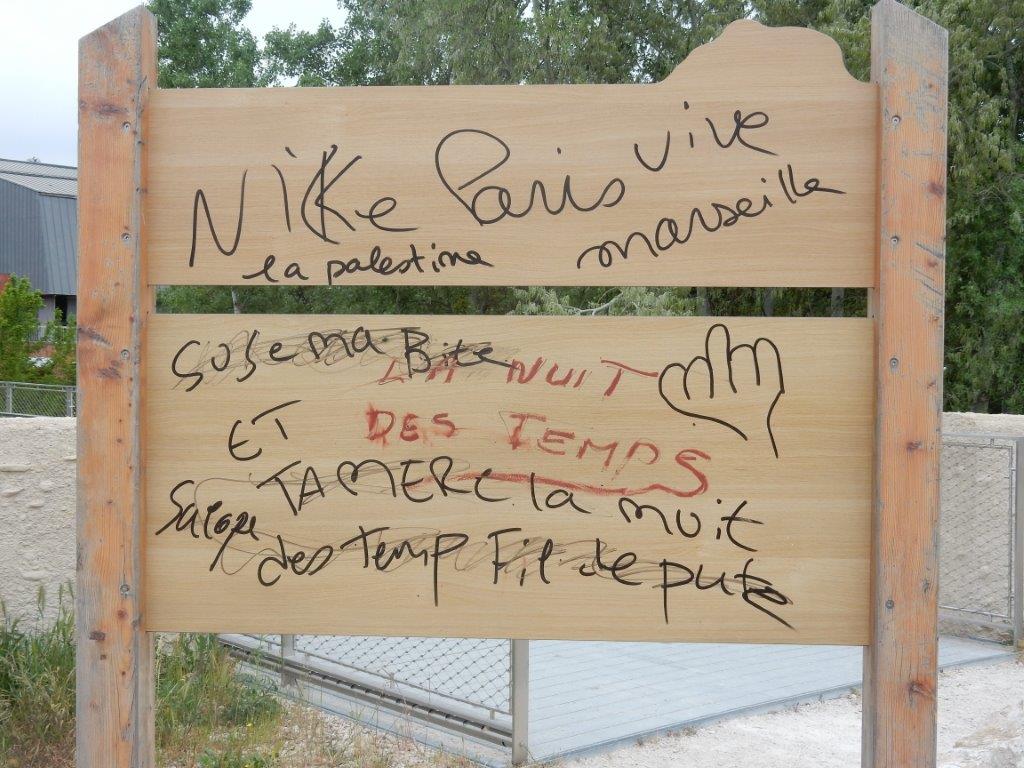 NiKe Paris vive
la palestine marseille
SuSe ma Bite
LA NUIT
ET DES TEMPS
TA MERE la nuit
des temp Fil de pute